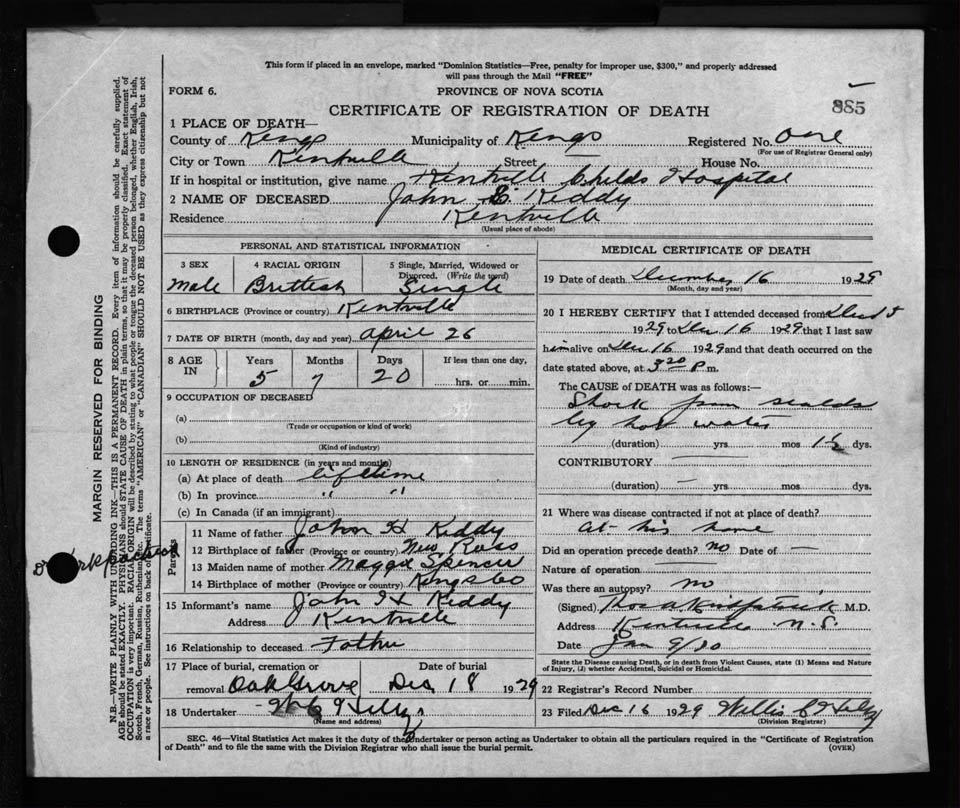 This form if placed in an envelope, marked "Dominion Statistics—Free, penalty for improper use, $300," and properly addressed
will pass through the Mail "FREE"
FORM 6.
PROVINCE OF NOVA SCOTIA
CERTIFICATE OF REGISTRATION OF DEATH
885
1 PLACE OF DEATH—
County of Kings Municipality of Kings Registered No. One
(For use of Registrar General only)
City or Town Kentville Street — House No.
If in hospital or institution, give name Kentville Childs Hospital
2 NAME OF DECEASED John Keddy
Residence Kentville
(Usual place of abode)
PERSONAL AND STATISTICAL INFORMATION
3 SEX 4 RACIAL ORIGIN 5 Single, Married, Widowed or Divorced. (Write the word)
Male Brittish Single
6 BIRTHPLACE (Province or country) Kentville
7 DATE OF BIRTH (month, day and year) April 26
8 AGE IN Years Months Days If less than one day,
5 7 20 hrs. or min.
9 OCCUPATION OF DECEASED
(a)
(Trade or occupation or kind of work)
(b)
(Kind of industry)
10 LENGTH OF RESIDENCE (in years and months)
(a) At place of death lifetime
(b) In province " "
(c) In Canada (if an immigrant)
Parents
11 Name of father John H Keddy
12 Birthplace of father (Province or country) New Ross
13 Maiden name of mother Maggie Spencer
14 Birthplace of mother (Province or country) Kings Co
15 Informant's name John H Keddy
Address Kentville
16 Relationship to deceased Father
17 Place of burial, cremation or Date of burial
removal Oak Grove Dec 18 1929
18 Undertaker
(Name and address)
MEDICAL CERTIFICATE OF DEATH
19 Date of death December 16 1929
(Month, day and year)
20 I HEREBY CERTIFY that I attended deceased from
1929 to Dec 16 1929 that I last saw
him alive on Dec 16 1929 and that death occurred on the
date stated above, at 3 20 P m.
The CAUSE of DEATH was as follows:—
Shock from scalds
by hot water
(duration) yrs mos 1½ dys.
CONTRIBUTORY —
(duration) — yrs mos dys.
21 Where was disease contracted if not at place of death?
At his home
Did an operation precede death? no Date of —
Nature of operation —
Was there an autopsy? no
(Signed) Thos A Kirkpatrick M.D.
Address Kentville N.S.
Date Jan 9/30
State the Disease causing Death, or in death from Violent Causes, state (1) Means and Nature
of Injury, (2) whether Accidental, Suicidal or Homicidal.
22 Registrar's Record Number
23 Filed Dec 16 1929 Willis
(Division Registrar)
SEC. 46—Vital Statistics Act makes it the duty of the Undertaker or person acting as Undertaker to obtain all the particulars required in the "Certificate of Registration
of Death" and to file the same with the Division Registrar who shall issue the burial permit.
(OVER)
MARGIN RESERVED FOR BINDING
N.B.—WRITE PLAINLY WITH UNFADING INK—THIS IS A PERMANENT RECORD. Every item of information should be carefully supplied.
AGE should be stated EXACTLY. PHYSICIANS should STATE CAUSE OF DEATH in plain terms, so that it may be properly classified. Exact statement of
OCCUPATION is very important. RACIAL ORIGIN will be described by stating to what people or tongue the deceased person belonged, whether English, Irish,
Scotch, French, German, Russian, Ruthenian, etc. The terms "AMERICAN" or "CANADIAN" SHOULD NOT BE USED as they express citizenship but not
a race or people. See instructions on back of certificate.